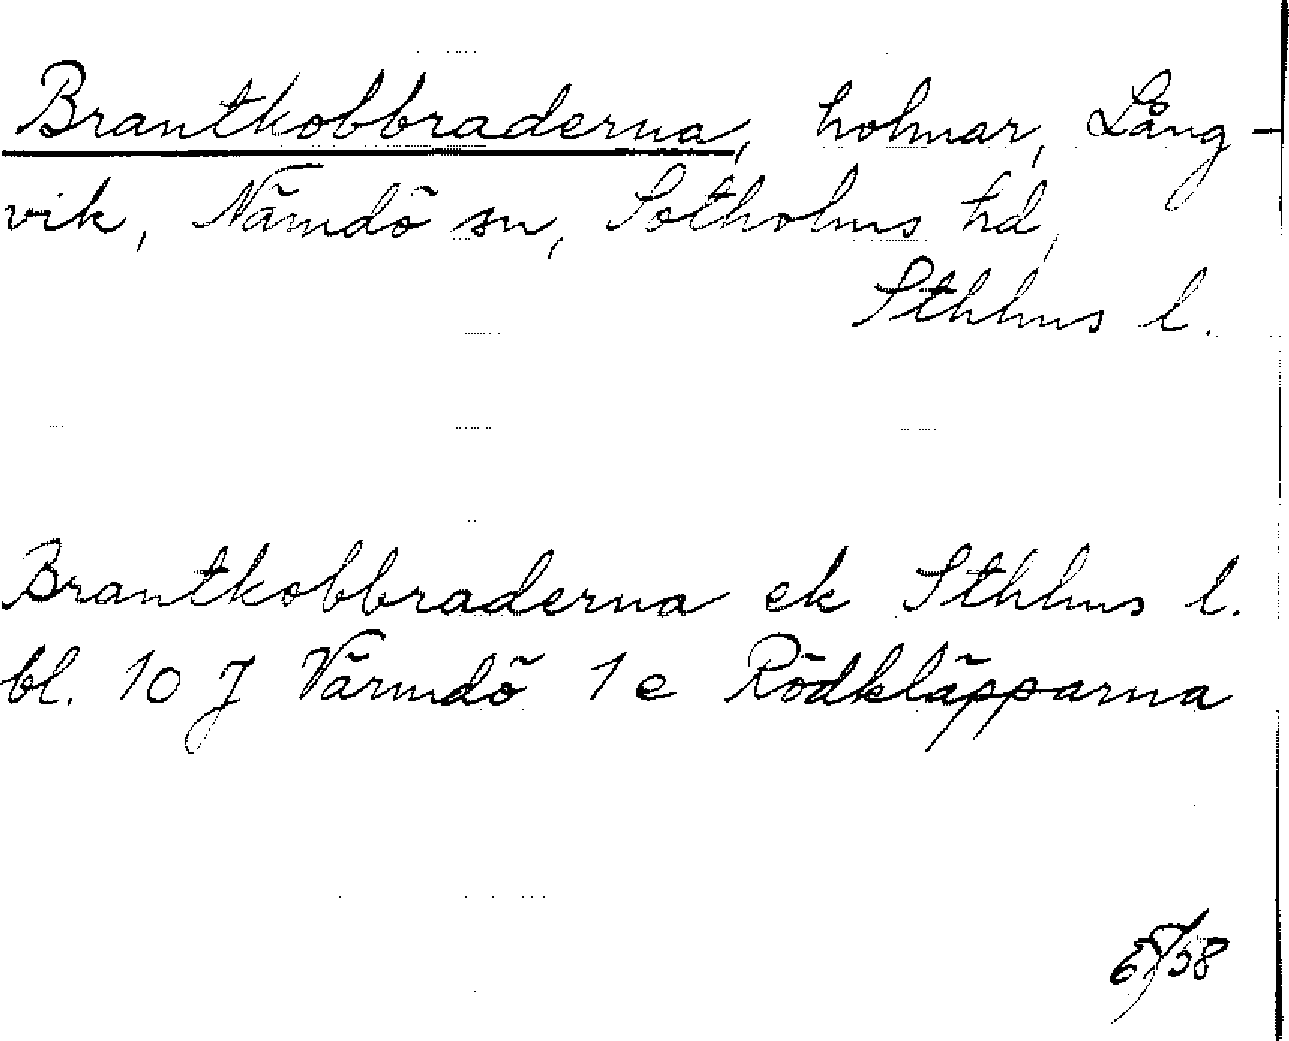 Brantkobbraderna, holmar, Lång-
vik, Nämdö sn, Sotholms hd,
Sthlms l.
Brantkobbraderna ek Sthlms l.
bl. 10 J Värmdö 1 e Rödkläpparna